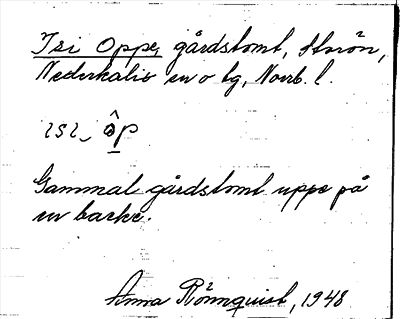 Isi Oppe, gårdstomt, Storön,
Nederkalix sn o tg, Norrb. l.
ısı‿ ộp
Gammal gårdstomt uppe på
en backe.
Anna Rönnquist, 1948